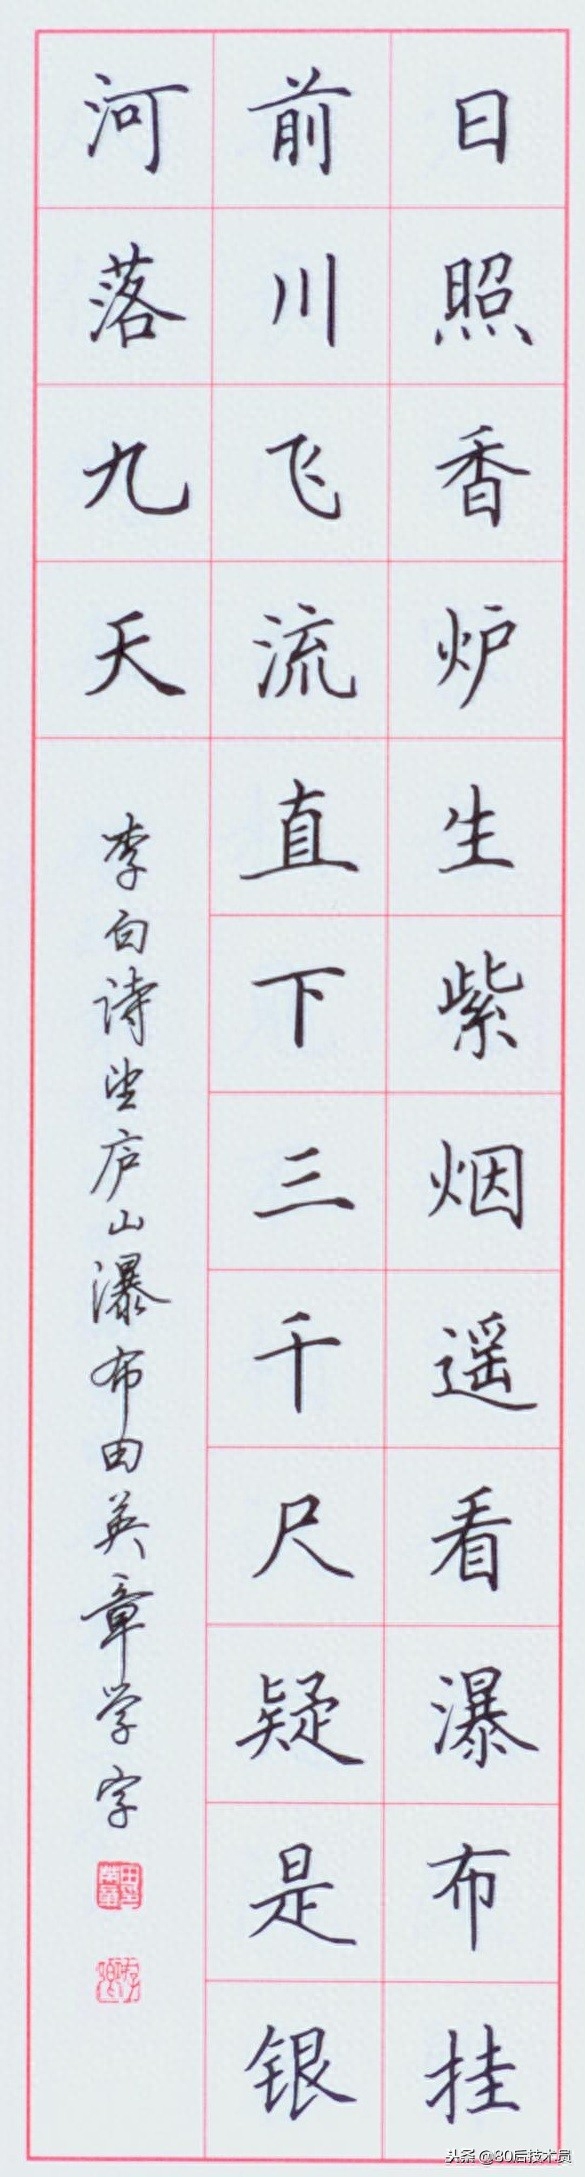 日照香炉生紫烟遥看瀑布挂
前川飞流直下三千尺疑是银
河落九天
李白诗望庐山瀑布田英章学字
头条@80后技术员